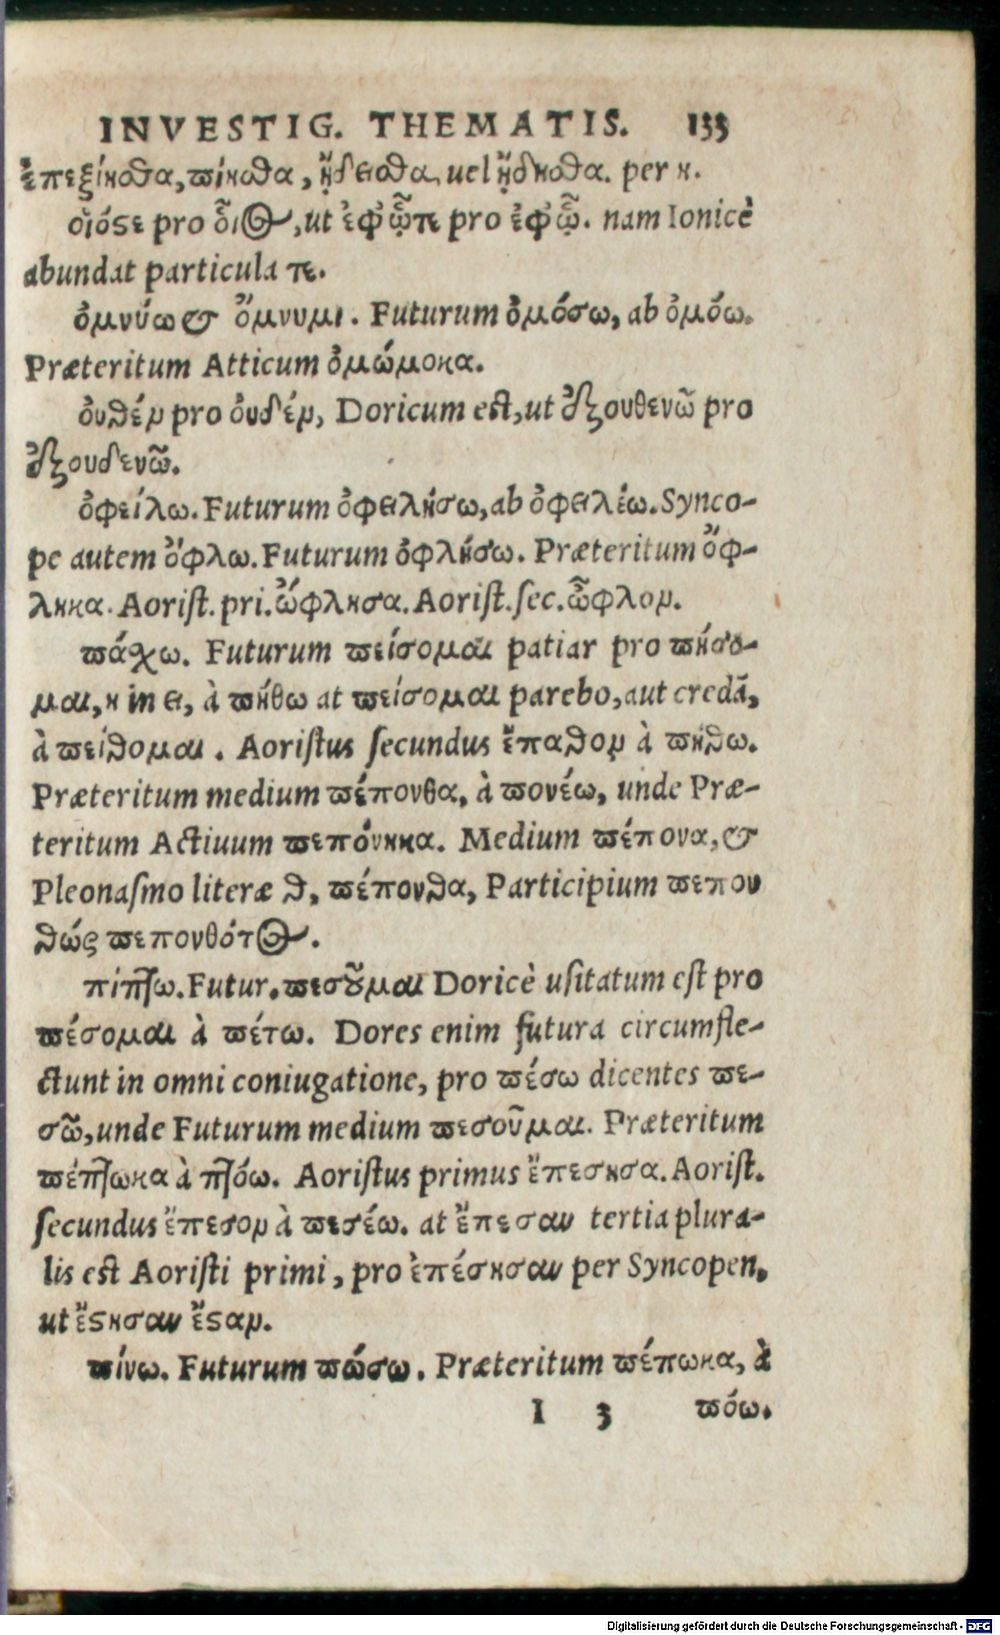 INVESTIG. THEMATIS. 133
ἐπεξίησθα, πίησθα, ᾔδεισθα, uel ᾔδησθα. per η.
οἱόστε pro οἷος, ut ἐφ' ᾧτε pro ἐφ' ᾧ. nam Ionicè
abundat particula τε.
ὀμνύω & ὄμνυμι. Futurum ὀμόσω, ab ὀμόω.
Præteritum Atticum ὀμώμοκα.
οὐθέν pro οὐδέν, Doricum est, ut ἐξουθενῶ pro
ἐξουδενῶ.
ὀφείλω. Futurum ὀφειλήσω, ab ὀφειλέω. Synco-
pe autem ὄφλω. Futurum ὀφλήσω. Præteritum ὤφ-
ληκα. Aorist. pri. ὤφλησα. Aorist. sec. ὦφλον.
πάσχω. Futurum πείσομαι patiar pro πήσο-
μαι, η in ει, à πήθω at πείσομαι parebo, aut credã,
à πείθομαι. Aoristus secundus ἔπαθον à πήθω.
Præteritum medium πέπονθα, à πονέω, unde Præ-
teritum Actiuum πεπόνηκα. Medium πέπονα, &
Pleonasmo literæ θ, πέπονθα, Participium πεπον
θώς πεπονθότος.
πίπτω. Futur. πεσοῦμαι Doricè usitatum est pro
πέσομαι à πέτω. Dores enim futura circumfle-
ctunt in omni coniugatione, pro πέσω dicentes πε-
σῶ, unde Futurum medium πεσοῦμαι. Præteritum
πέπτωκα à πτόω. Aoristus primus ἔπεσησα. Aorist.
secundus ἔπεσον à πεσέω. at ἔπεσαν tertia plura-
lis est Aoristi primi, pro ἐπέσησαν per Syncopen,
ut ἔστησαν ἔσταν.
πίνω. Futurum πώσω. Præteritum πέπωκα, à
I 3 πόω.
Digitalisierung gefördert durch die Deutsche Forschungsgemeinschaft - DFG